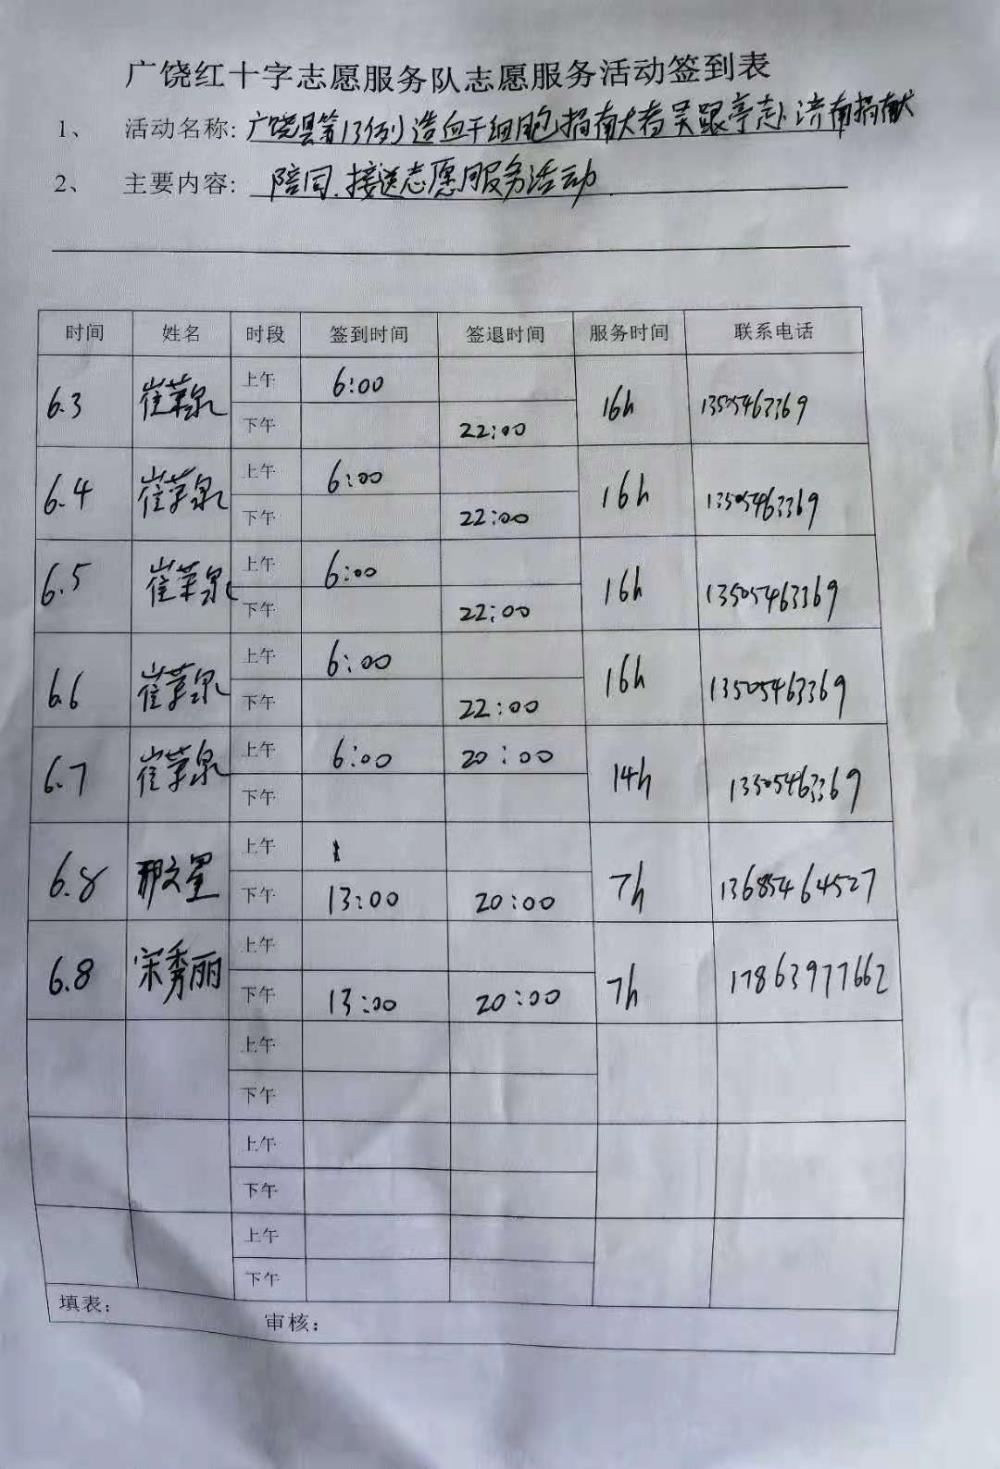 广饶红十字志愿服务队志愿服务活动签到表
1、 活动名称: 广饶县第13例造血干细胞捐献者吴跟亭赴济南捐献
2、 主要内容: 陪同、接送志愿服务活动
时间 姓名 时段 签到时间 签退时间 服务时间 联系电话
6.3 崔苹泉 上午 6:00 16h 13505463369
下午 22:00
6.4 崔苹泉 上午 6:00 16h 13505463369
下午 22:00
6.5 崔苹泉 上午 6:00 16h 13505463369
下午 22:00
6.6 崔苹泉 上午 6:00 16h 13505463369
下午 22:00
6.7 崔苹泉 上午 6:00 20:00 14h 13505463369
下午
6.8 邢文星 上午 7h 13685464527
下午 13:00 20:00
6.8 宋秀丽 上午 7h 17863977662
下午 13:00 20:00
上午
下午
上午
下午
上午
下午
填表: 审核: